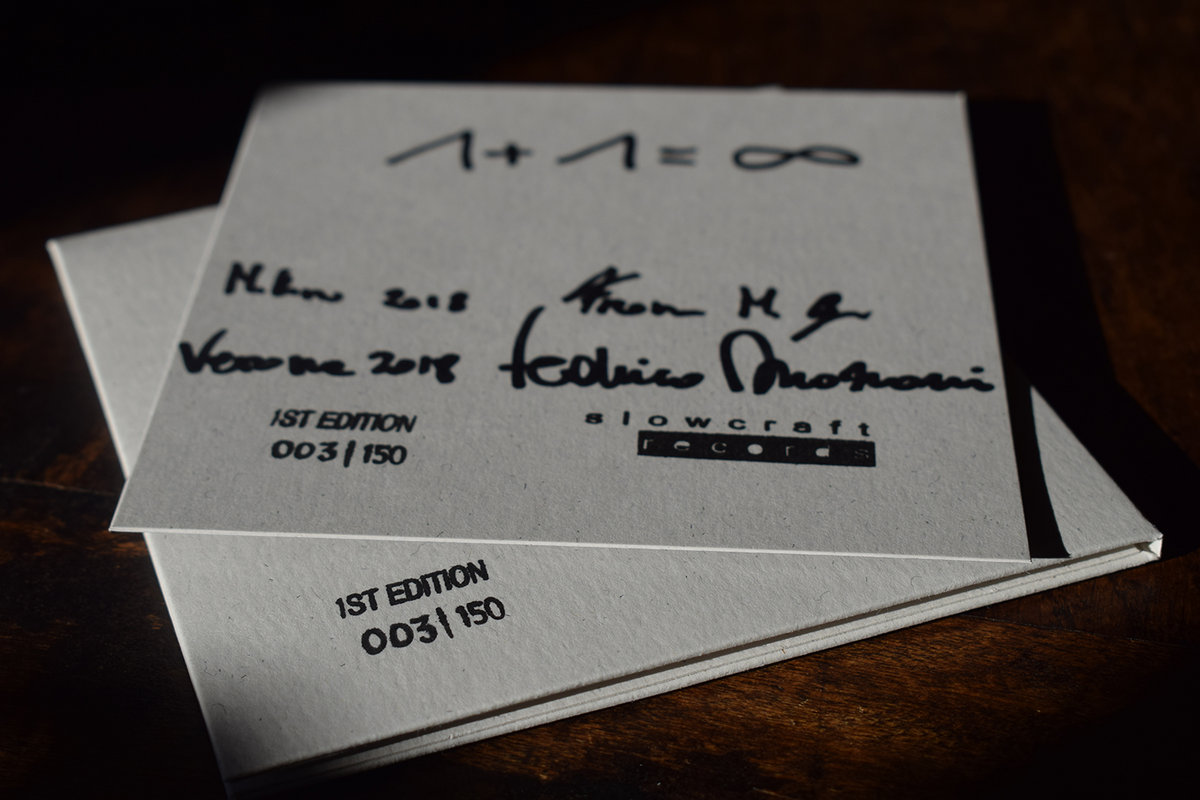 1 + 1 = ∞
Milano 2018 From M
Verona 2018 Federico
1ST EDITION
003 | 150
slowcraft
records
1ST EDITION
003 | 150